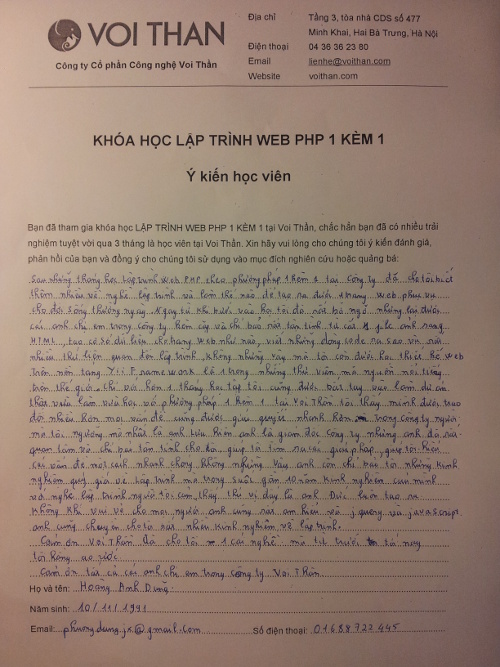 VOI THAN
Công ty Cổ phần Công nghệ Voi Thần
Địa chỉ Tầng 3, tòa nhà CDS số 477
Minh Khai, Hai Bà Trưng, Hà Nội
Điện thoại 04 36 36 23 80
Email lienhe@voithan.com
Website voithan.com
KHÓA HỌC LẬP TRÌNH WEB PHP 1 KÈM 1
Ý kiến học viên
Bạn đã tham gia khóa học LẬP TRÌNH WEB PHP 1 KÈM 1 tại Voi Thần, chắc hẳn bạn đã có nhiều trải
nghiệm tuyệt vời qua 3 tháng là học viên tại Voi Thần. Xin hãy vui lòng cho chúng tôi ý kiến đánh giá,
phản hồi của bạn và đồng ý cho chúng tôi sử dụng vào mục đích nghiên cứu hoặc quảng bá:
Sau những tháng học lập trình web PHP theo phương pháp 1 kèm 1 tại công ty đã cho tôi biết
thêm nhiều về nghề lập trình và làm thế nào để tạo ra được 1 trang web phục vụ
cho đời sống thường ngày. Ngay từ khi bước vào học tôi đã rất bỡ ngỡ nhưng lại được
các anh chị em trong công ty kèm cặp và chỉ bảo rất tận tình từ cái
HTML, tạo cơ sở dữ liệu cho trang web như nào, viết những dòng code ra sao và rất
nhiều thứ liên quan đến lập trình. không những vậy mà tôi còn được học thiết kế web
trên nền tảng Yii Framework là 1 trong những thư viện mã nguồn nổi tiếng
trên thế giới. Chỉ với hơn 1 tháng học tập tôi cũng được bắt tay vào làm dự án
thật vừa làm vừa học với phương pháp 1 kèm 1 tại Voi Thần tôi thấy mình được trao
đổi nhiều hơn mọi vấn đề cũng được giải quyết nhanh hơn trong công ty người
mà tôi ngưỡng mộ nhất là anh Lưu Hiền anh là giám đốc công ty nhưng anh đã rất
quan tâm và chỉ bảo tận tình cho tôi, giúp tôi tìm ra các giải pháp, giúp tôi hiểu
các vấn đề một cách nhanh chóng không những vậy anh còn chỉ bảo tôi những kinh
nghiệm quý giá về lập trình mà trong suốt gần 10 năm kinh nghiệm của mình
và nghề lập trình người tôi cảm thấy thú vị đây là anh Đức luôn tạo ra
không khí vui vẻ cho mọi người, anh cũng rất am hiểu về jquery và javascript
anh cũng chuyên cho tôi rất nhiều kinh nghiệm về lập trình.
Cảm ơn Voi Thần đã cho tôi 1 cái nghề mà từ trước tới nay
tôi hằng ao ước.
Cảm ơn tất cả các anh chị em trong công ty Voi Thần
Họ và tên: Hoàng Anh Dũng
Năm sinh: 10/11/1991
Email: phuongdung.jx@gmail.com Số điện thoại: 01688722445